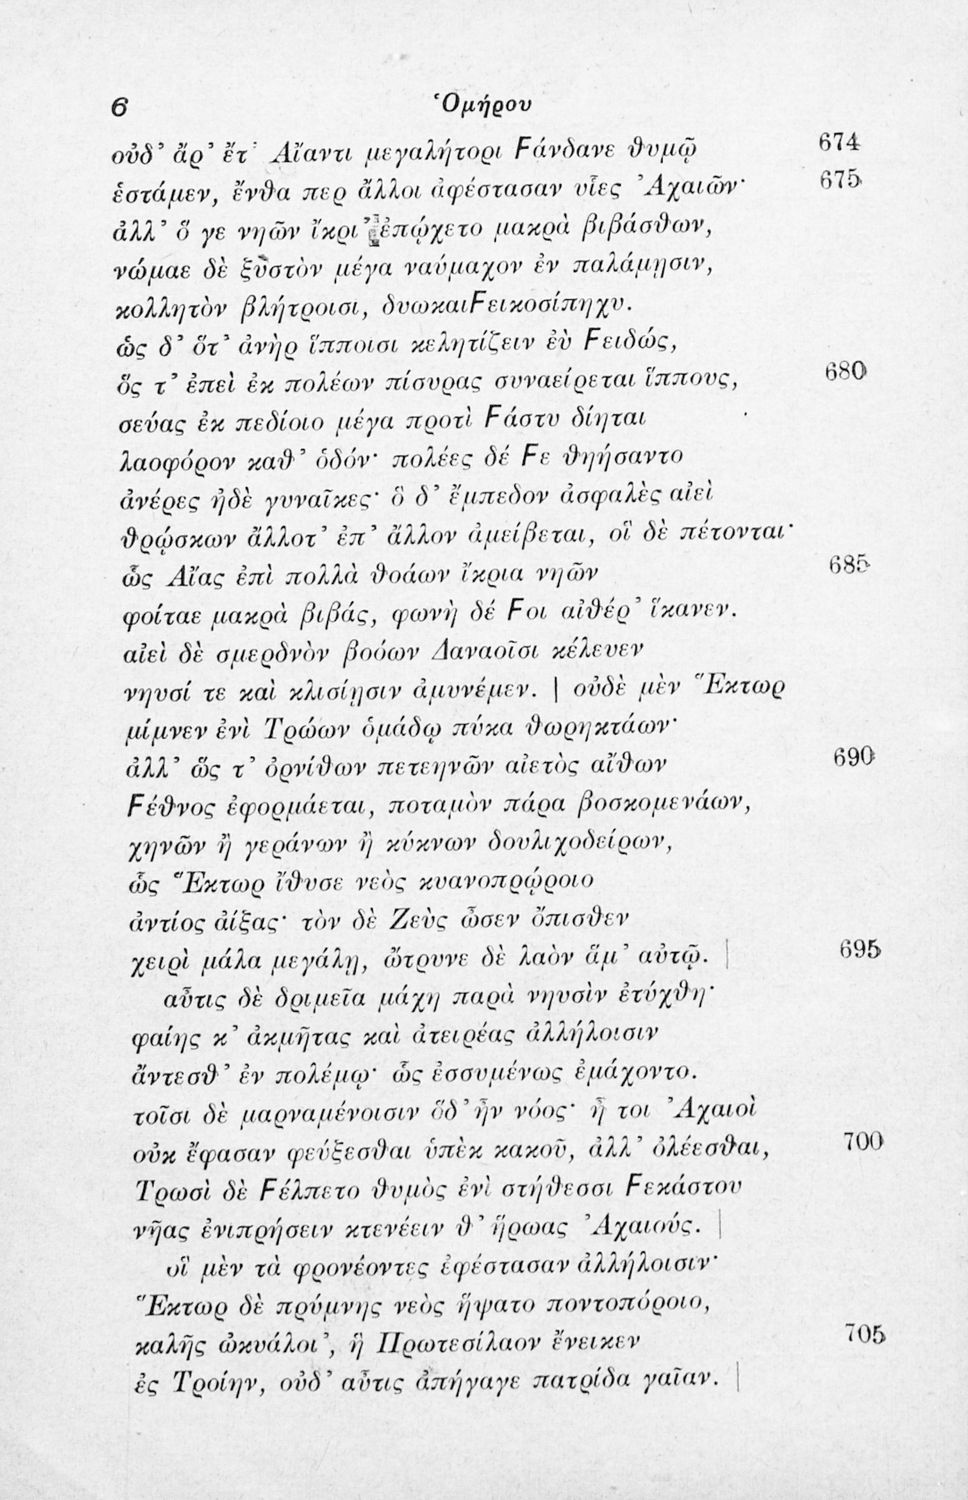 6 Ὁμήρου
οὐδ' ἄρ' ἔτ' Αἴαντι μεγαλήτορι Ϝάνδανε θυμῷ 674
ἑστάμεν, ἔνθα περ ἄλλοι ἀφέστασαν υἷες Ἀχαιῶν· 675
ἀλλ' ὅ γε νηῶν ἴκρι' ἐπῴχετο μακρὰ βιβάσθων,
νώμαε δὲ ξυστὸν μέγα ναύμαχον ἐν παλάμῃσιν,
κολλητὸν βλήτροισι, δυωκαιϜεικοσίπηχυ.
ὡς δ' ὅτ' ἀνὴρ ἵπποισι κελητίζειν ἐὺ Ϝειδώς,
ὅς τ' ἐπεὶ ἐκ πολέων πίσυρας συναείρεται ἵππους, 680
σεύας ἐκ πεδίοιο μέγα προτὶ Ϝάστυ δίηται
λαοφόρον καθ' ὁδόν· πολέες δέ Ϝε θηήσαντο
ἀνέρες ἠδὲ γυναῖκες· ὃ δ' ἔμπεδον ἀσφαλὲς αἰεὶ
θρῴσκων ἄλλοτ' ἐπ' ἄλλον ἀμείβεται, οἳ δὲ πέτονται·
ὣς Αἴας ἐπὶ πολλὰ θοάων ἴκρια νηῶν 685
φοίταε μακρὰ βιβάς, φωνὴ δέ Ϝοι αἰθέρ' ἵκανεν.
αἰεὶ δὲ σμερδνὸν βοόων Δαναοῖσι κέλευεν
νηυσί τε καὶ κλισίῃσιν ἀμυνέμεν. | οὐδὲ μὲν Ἕκτωρ
μίμνεν ἐνὶ Τρώων ὁμάδῳ πύκα θωρηκτάων·
ἀλλ' ὥς τ' ὀρνίθων πετεηνῶν αἰετὸς αἴθων 690
Ϝέθνος ἐφορμάεται, ποταμὸν πάρα βοσκομενάων,
χηνῶν ἢ γεράνων ἢ κύκνων δουλιχοδείρων,
ὣς Ἕκτωρ ἴθυσε νεὸς κυανοπρῴροιο
ἀντίος ἀίξας· τὸν δὲ Ζεὺς ὦσεν ὄπισθεν
χειρὶ μάλα μεγάλῃ, ὤτρυνε δὲ λαὸν ἅμ' αὐτῷ. | 695
αὖτις δὲ δριμεῖα μάχη παρὰ νηυσὶν ἐτύχθη·
φαίης κ' ἀκμῆτας καὶ ἀτειρέας ἀλλήλοισιν
ἄντεσθ' ἐν πολέμῳ· ὣς ἐσσυμένως ἐμάχοντο.
τοῖσι δὲ μαρναμένοισιν ὅδ' ἦν νόος· ἦ τοι Ἀχαιοὶ
οὐκ ἔφασαν φεύξεσθαι ὑπὲκ κακοῦ, ἀλλ' ὀλέεσθαι, 700
Τρωσὶ δὲ Ϝέλπετο θυμὸς ἐνὶ στήθεσσι Ϝεκάστου
νῆας ἐνιπρήσειν κτενέειν θ' ἥρωας Ἀχαιούς. |
οἳ μὲν τὰ φρονέοντες ἐφέστασαν ἀλλήλοισιν·
Ἕκτωρ δὲ πρύμνης νεὸς ἥψατο ποντοπόροιο,
καλῆς ὠκυάλοι', ἣ Πρωτεσίλαον ἔνεικεν 705
ἐς Τροίην, οὐδ' αὖτις ἀπήγαγε πατρίδα γαῖαν. |